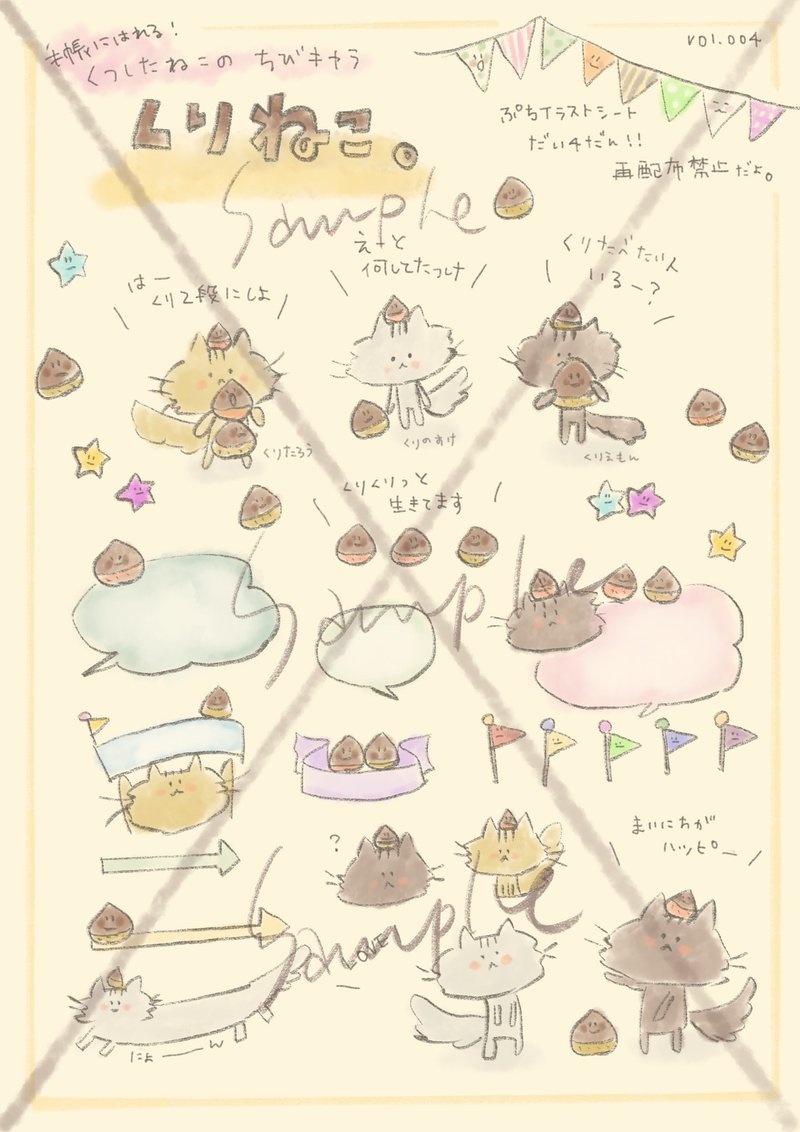 手帳にはれる!
くつしたねこの ちびキャラ
vol.004
くりねこ。
ぷちイラストシート
だい4だん!!
再配布禁止だよ。
Sample
はー
くり2段にしよ
えーと
何してたっけ
くりたべたい人
いるー?
くりたろう
くりのすけ
くりえもん
くりくりっと
生きてます
Sample
?
まいにちが
ハッピー
Sample
LOVE
にょーん